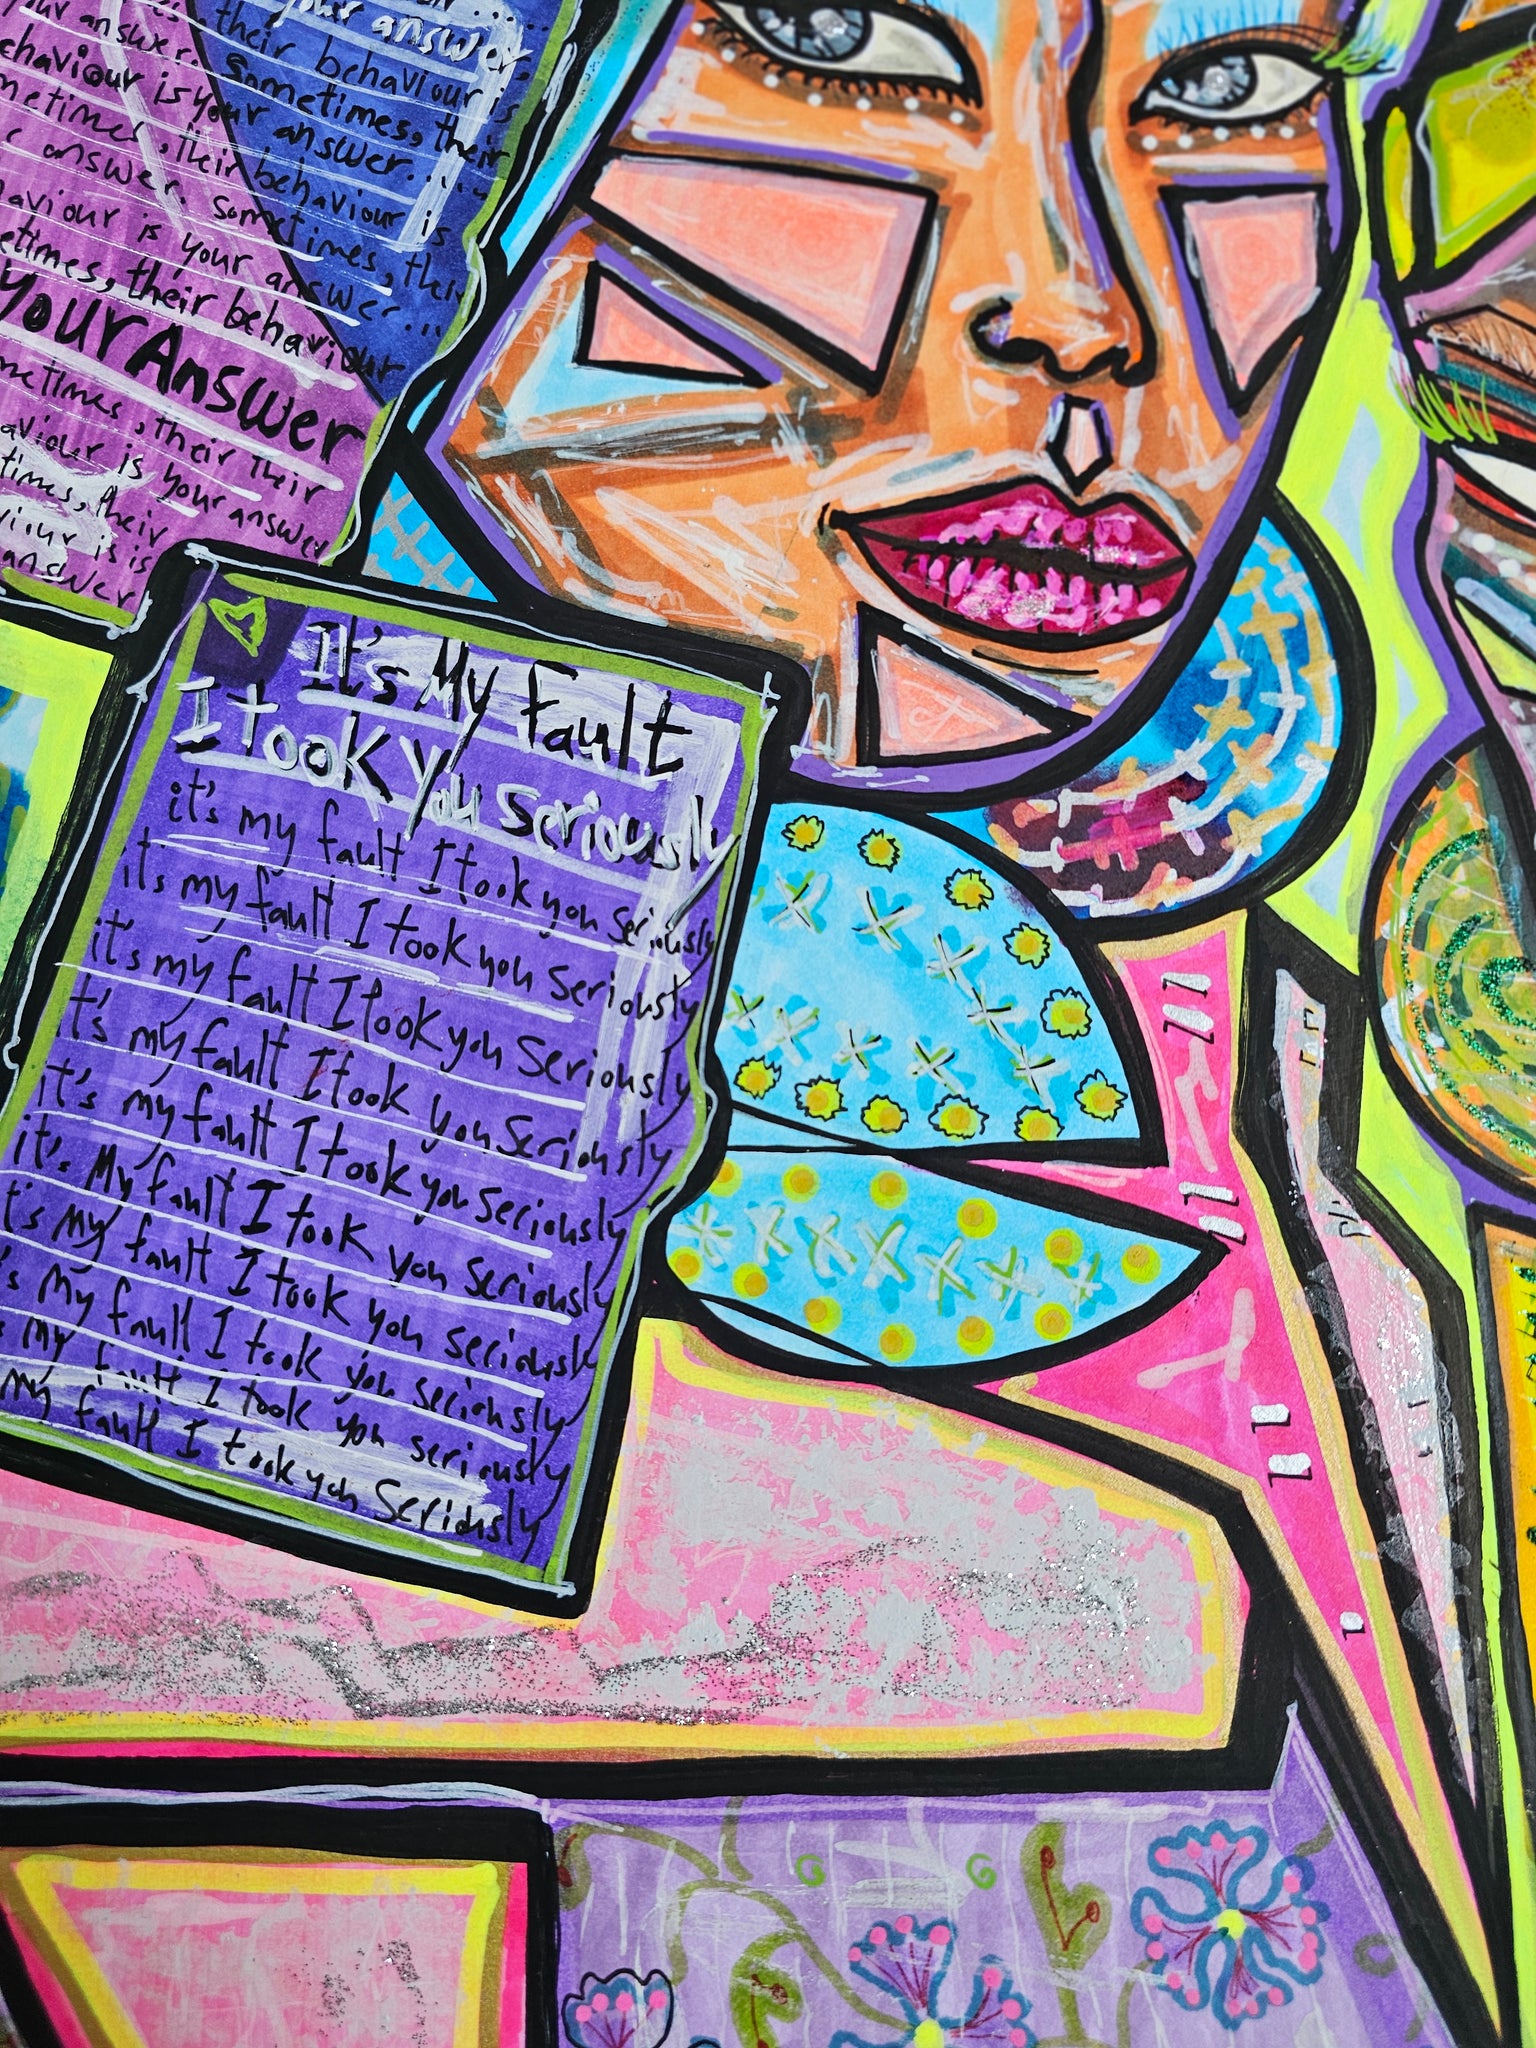 your answer.
your answer. their behaviour is
behaviour is your Sometimes, their
sometimes, their answer.....
answer. behaviour is
behaviour is your Sometimes, their
sometimes, their behaviour answer...
Your Answer
sometimes, their their
behaviour is your answer
times, their
is is
answer
It's My Fault
I took You Seriously
it's my fault I took you seriously
it's my fault I took you seriously
it's my fault I took you seriously
it's my fault I took you seriously
it's my fault I took you seriously
it's My fault I took you seriously
t's My fault I took you seriously
's My fault I took you seriously
s My fault I took you seriously
My fault I took you Seriously